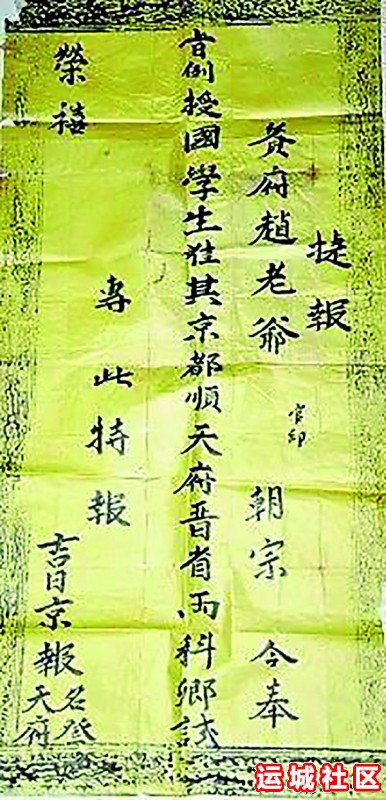 捷報
貴府趙老爺 官印 朝宗 今奉
旨例授國學生准其京都順天府晋省兩科鄉試
專此特報
榮禧
吉日京報
名登
天府
运城社区